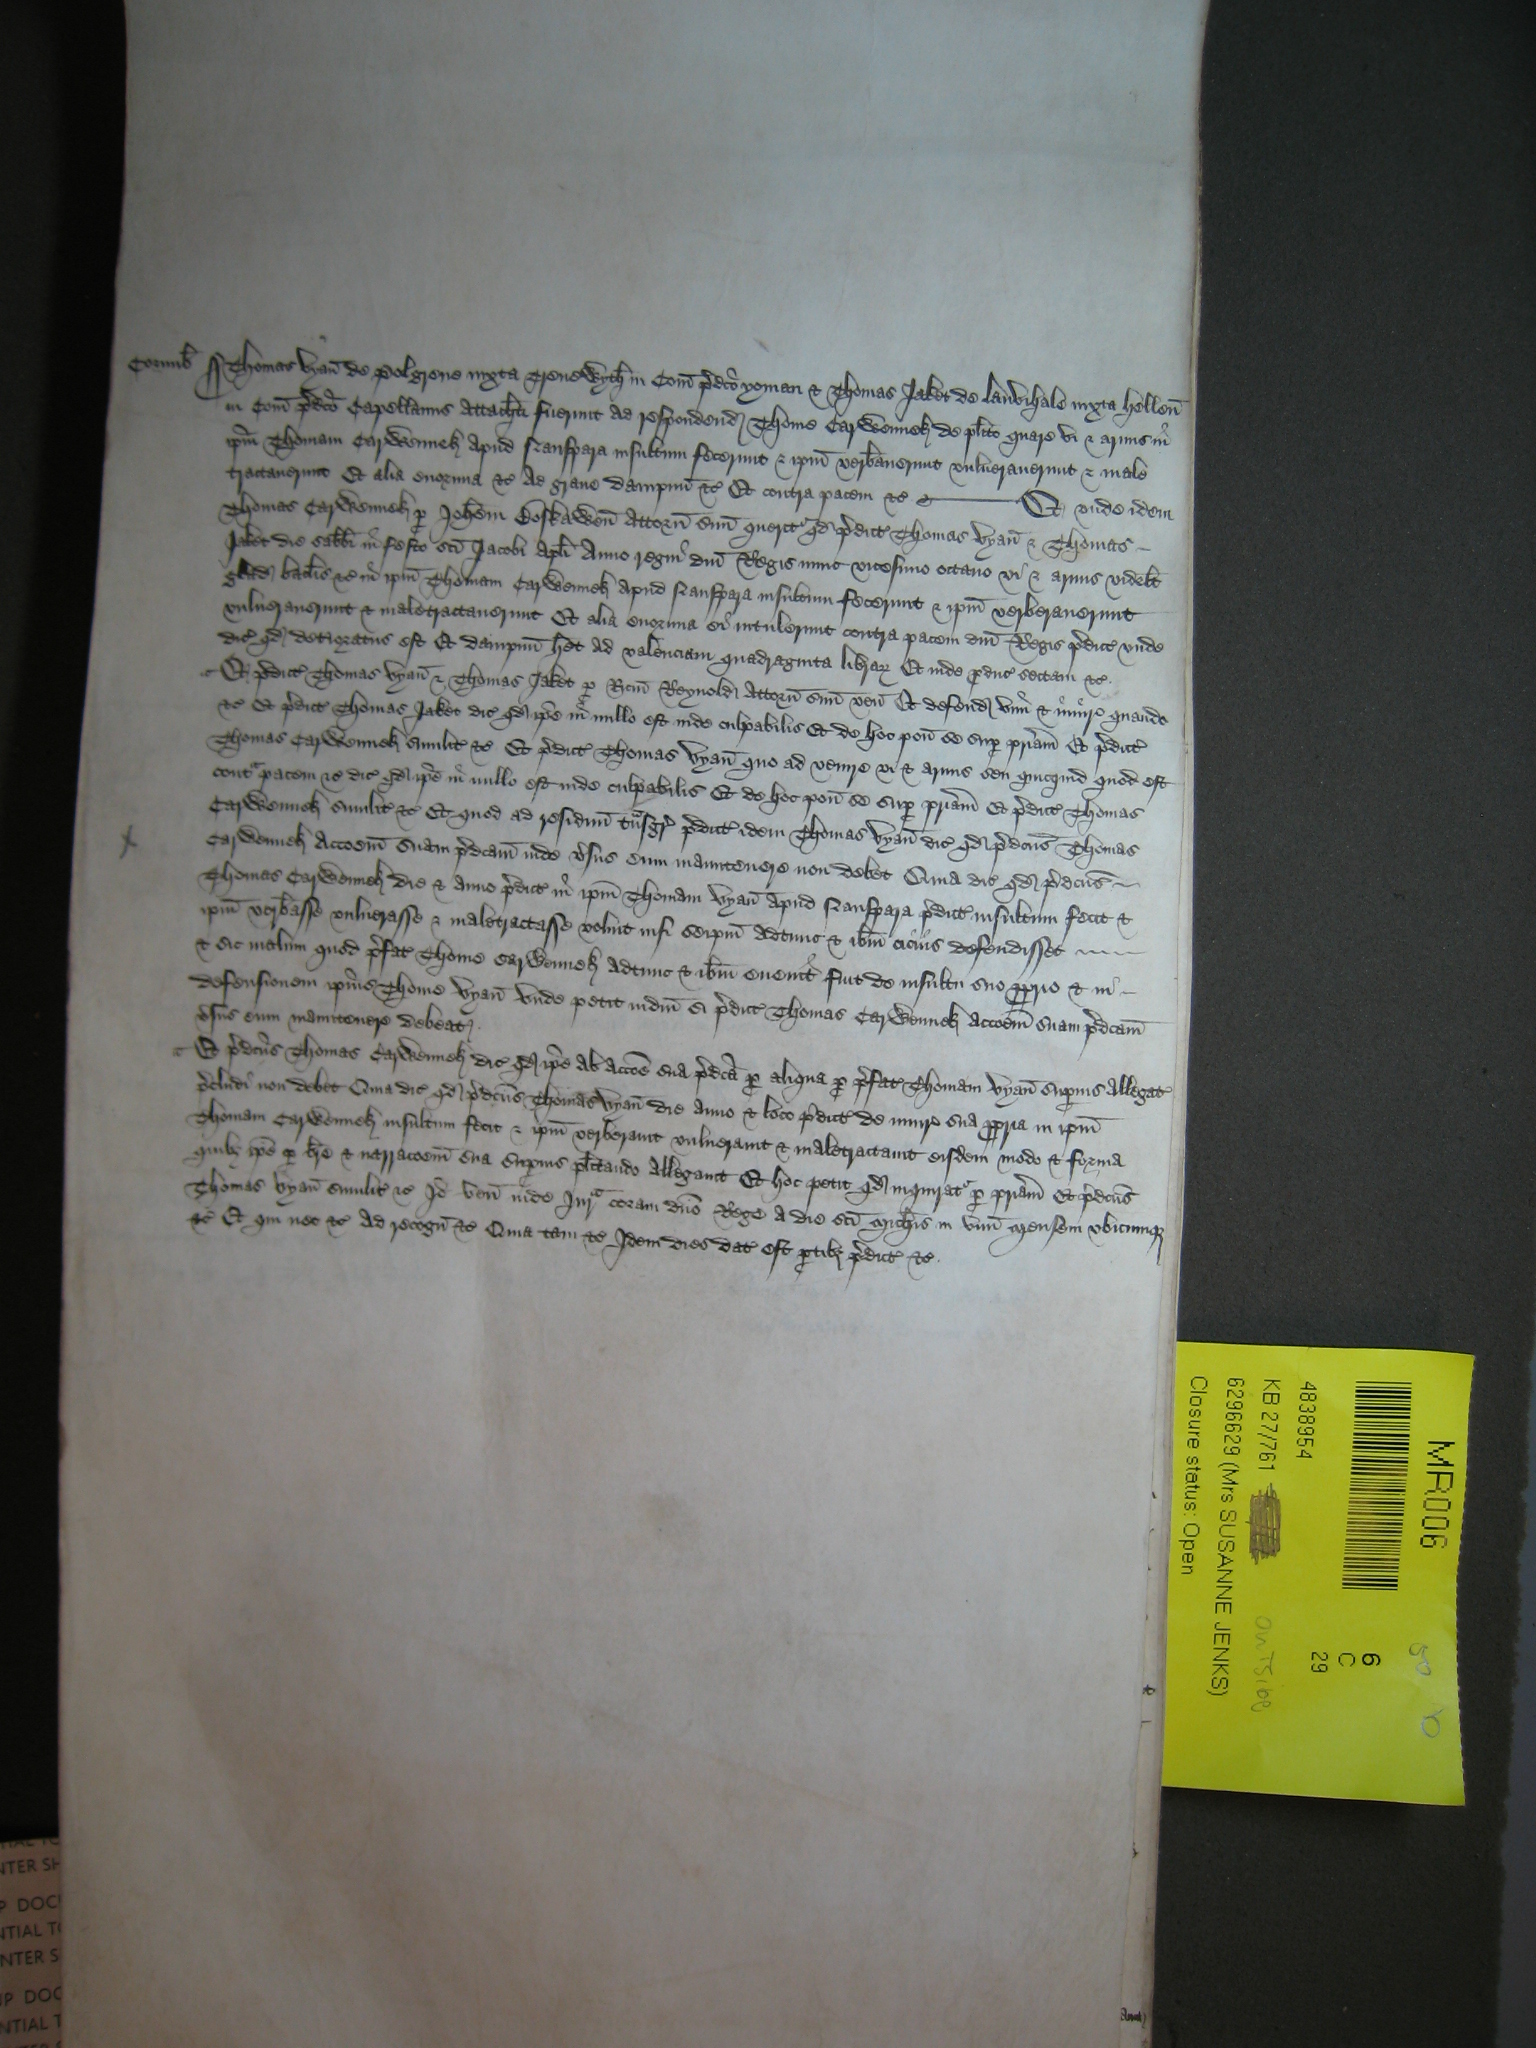 Cornub Thomas Vyan de Polgrene juxta Trenewyth in Com pdco yoman & Thomas Jaket de Lanvihale juxta Hellen
in Com pdco Capellanus attachti fuerunt ad respondend Thome Carwennek de plito quare vi & armis in
ipm Thomam Carwennek apud insultum fecerunt & ipm verbaverunt vulneraverunt & male
tractaverunt Et alia enormia &c Ad grave dampnum &c Et contra pacem &c Et unde idem
Thomas Carwennek p Johem Boskawen Attorn suu querit qd pdict Thomas Vyan & Thomas
Jaket die sabbi in festo sci Jacobi apli Anno regni dni Regis nunc vicesimo octavo vi & armis videlt
glad baclis &c in ipm Thomam Carwennek apud insultum fecerunt & ipm verberaverunt
vulneraverunt & maletractaverunt Et alia enormia ei intulerunt contra pacem dni Regis pdict unde
dic qd deterioratus est Et dampnum het ad valenciam quadraginta librar Et inde pduc sectam &c.
Et pdict Thomas Vyan & Thomas Jaket p Ricm Reynold Attorn suu ven Et defend vim & injur quando
&c Et pdict Thomas Jaket dic qd ipe in nullo est inde culpabilis Et de hoc pon se sup priam Et pdict
Thomas Carwennek similit &c Et pdict Thomas Vyan quo ad venire vi & armis seu quicquid quod est
conta pacem &c dic qd ipe in nullo est inde culpabilis Et de hoc pon se sup priam Et pdict Thomas
Carwennek similit &c Et quod ad residuu tnsgr pdict idem Thomas Vyan dic qd pdcus Thomas
Carwennek Accoem suam pdcam inde vsus eum manutenere non debet Quia dic qd pdcus
Thomas Carwennek die & anno pdict in ipm Thomam Vyan apud pdict insultum fecit &
ipm verbasse vulnerasse & maletractasse voluit nisi seipm adtunc & ibm defendisset
& sic malum quod pfat Thome Carwennek adtunc & ibm evenit fuit de insultu suo pprio & in
defensionem ipius Thome Vyan Unde petit judiu si pdict Thomas Carwennek Accoem suam pdcam
vsus eum manutenere debeat.
Et pdcus Thomas Carwennek dic qd ipe ab accoe sua pdca p aliqua p pfat Thomam Vyan supius allegat
pcludi non debet Quia dic qd pdcus Thomas Vyan die anno & loco pdict de injur sua ppria in ipm
Thomam Carwennek insultum fecit & ipm verberavit vulneravit & maletractavit eisdem modo & forma
quib ipe p bre & narracoem sua supius plitando allegavit Et hoc petit qd inquirat p priam Et pdcus
Thomas Vyan similit &c Io ven inde Jur coram dno Rege a die sci Michis in unu Mensem ubicumq
&c Et qui nec &c Ad recogn &c Quia tam &c Idem dies dat est ptib pdict &c.
MR006
4838954
KB 27/761
6296629 (Mrs SUSANNE JENKS)
Closure status: Open
6
C
29
outside